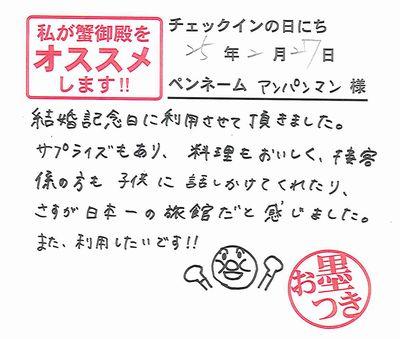 私が蟹御殿を
オススメ
します!!
チェックインの日にち
25年2月27日
ペンネーム アンパンマン 様
結婚記念日に利用させて頂きました。
サプライズもあり、料理もおいしく、接客
係の方も子供に話しかけてくれたり、
さすが日本一の旅館だと感じました。
また、利用したいです!!
お墨つき